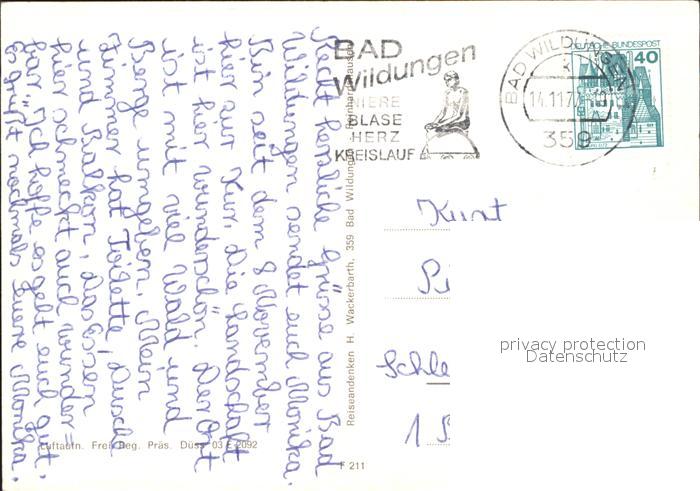 Recht herzliche Grüsse aus Bad
Wildungen sendet euch Monika.
Bin seit dem 8 November
hier zur Kur. Die Landschaft
ist hier wunderschön. Der Ort
ist mit viel Wald und
Berge umgeben. Mein
Zimmer hat Toilette, Dusche
und Balkon, Das Essen
hier schmeckt auch wunder=
bar. Ich hoffe es geht euch gut.
Es grüßt nochmals Euere Monika.
BAD
Wildungen
NIERE
BLASE
HERZ
KREISLAUF
BAD WILDUNGEN
14.11.77
359
DEUTSCHE BUNDESPOST
40
Kurt
Schle
1 B
privacy protection
Datenschutz
Reiseandenken H. Wackerbarth, 359 Bad Wildungen
Luftaufn. Frei. Reg. Präs. Düss. 03 E 2092
F 211